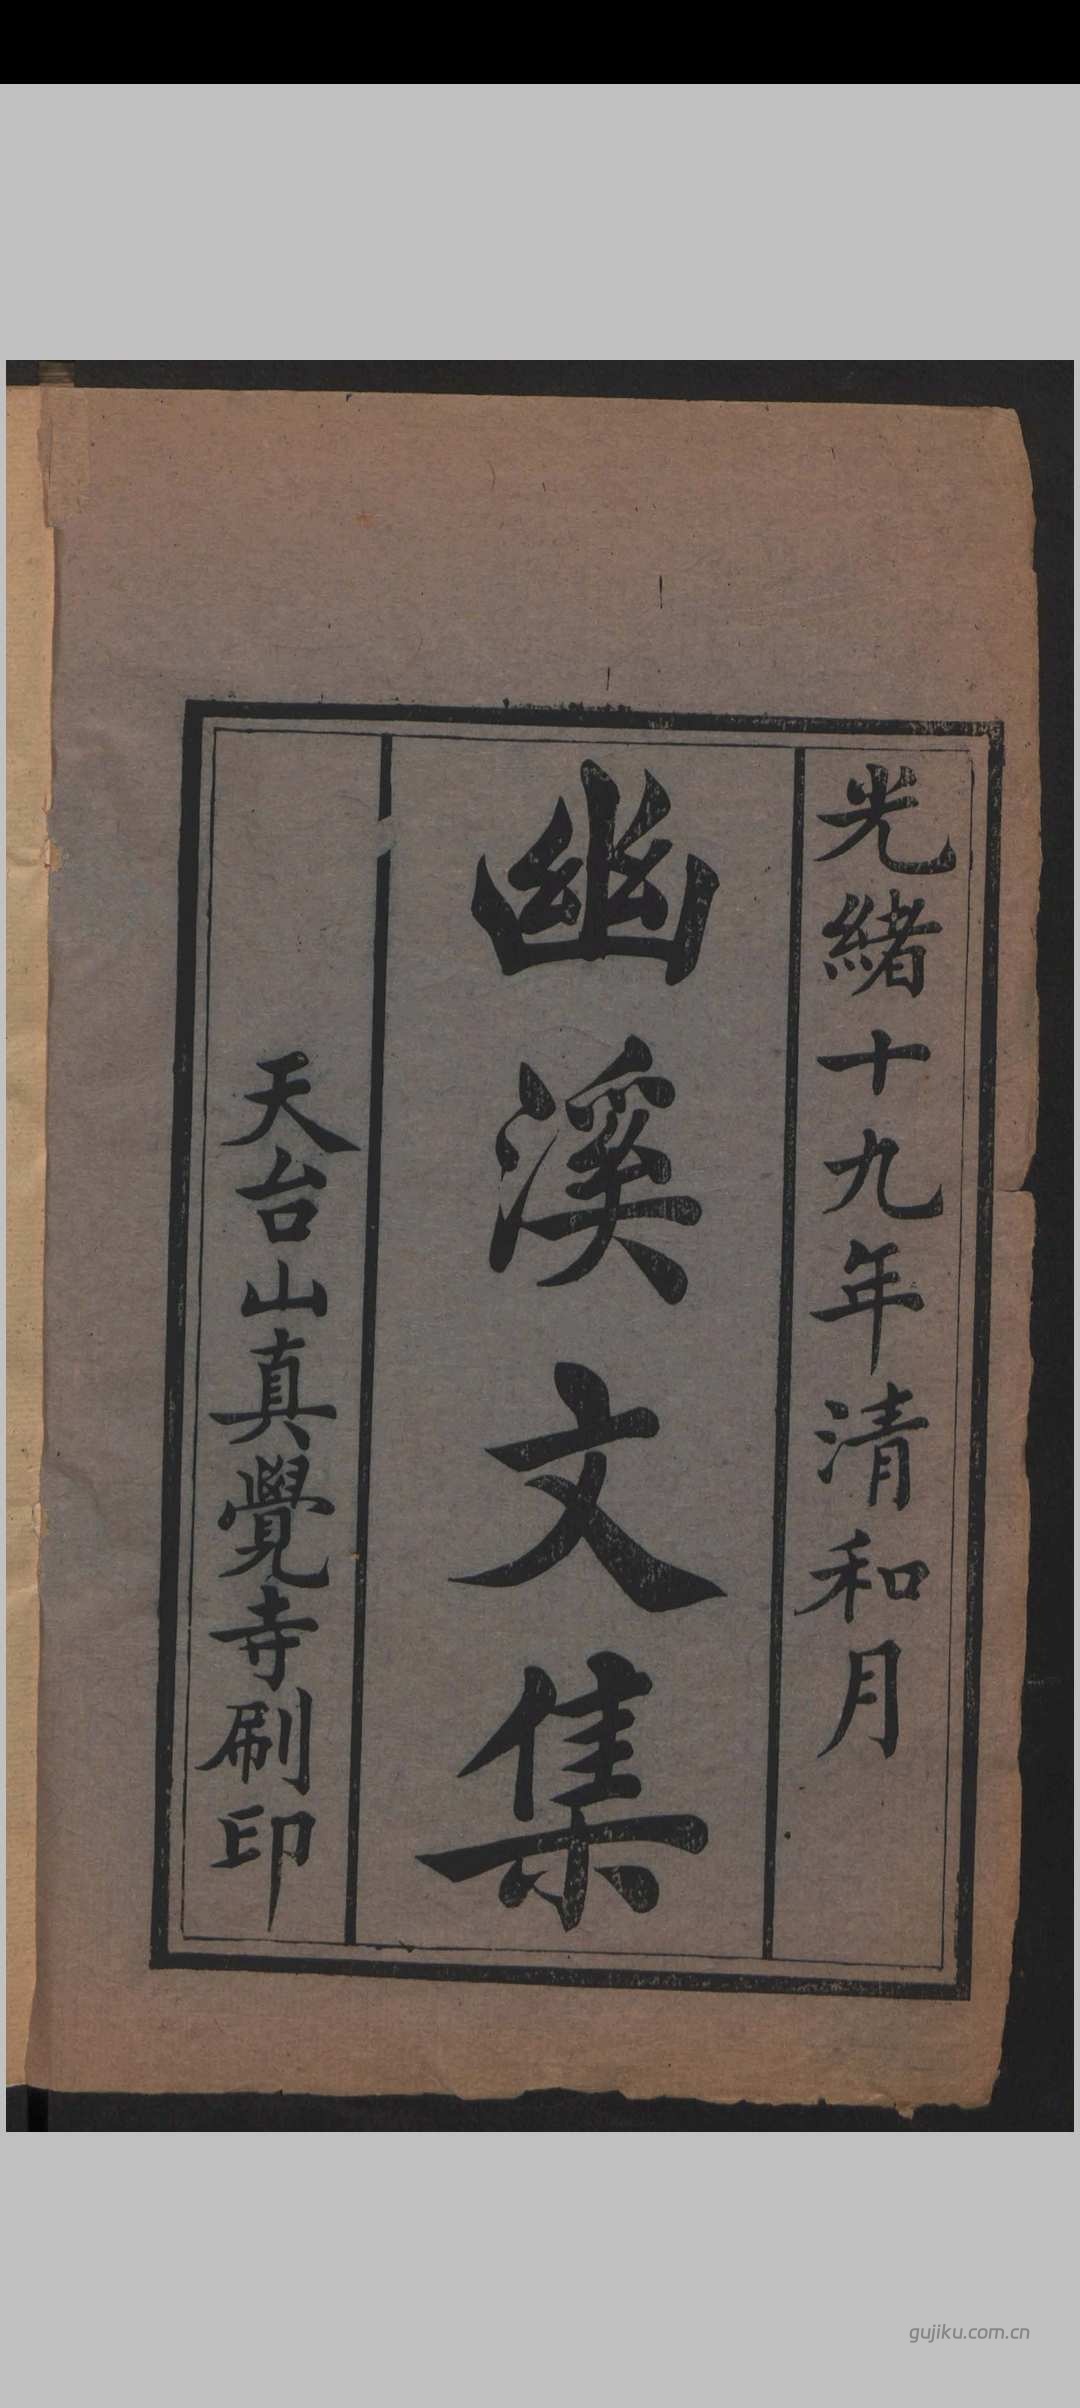 光緒十九年清和月
幽溪文集
天台山真覺寺刷印
gujiku.com.cn